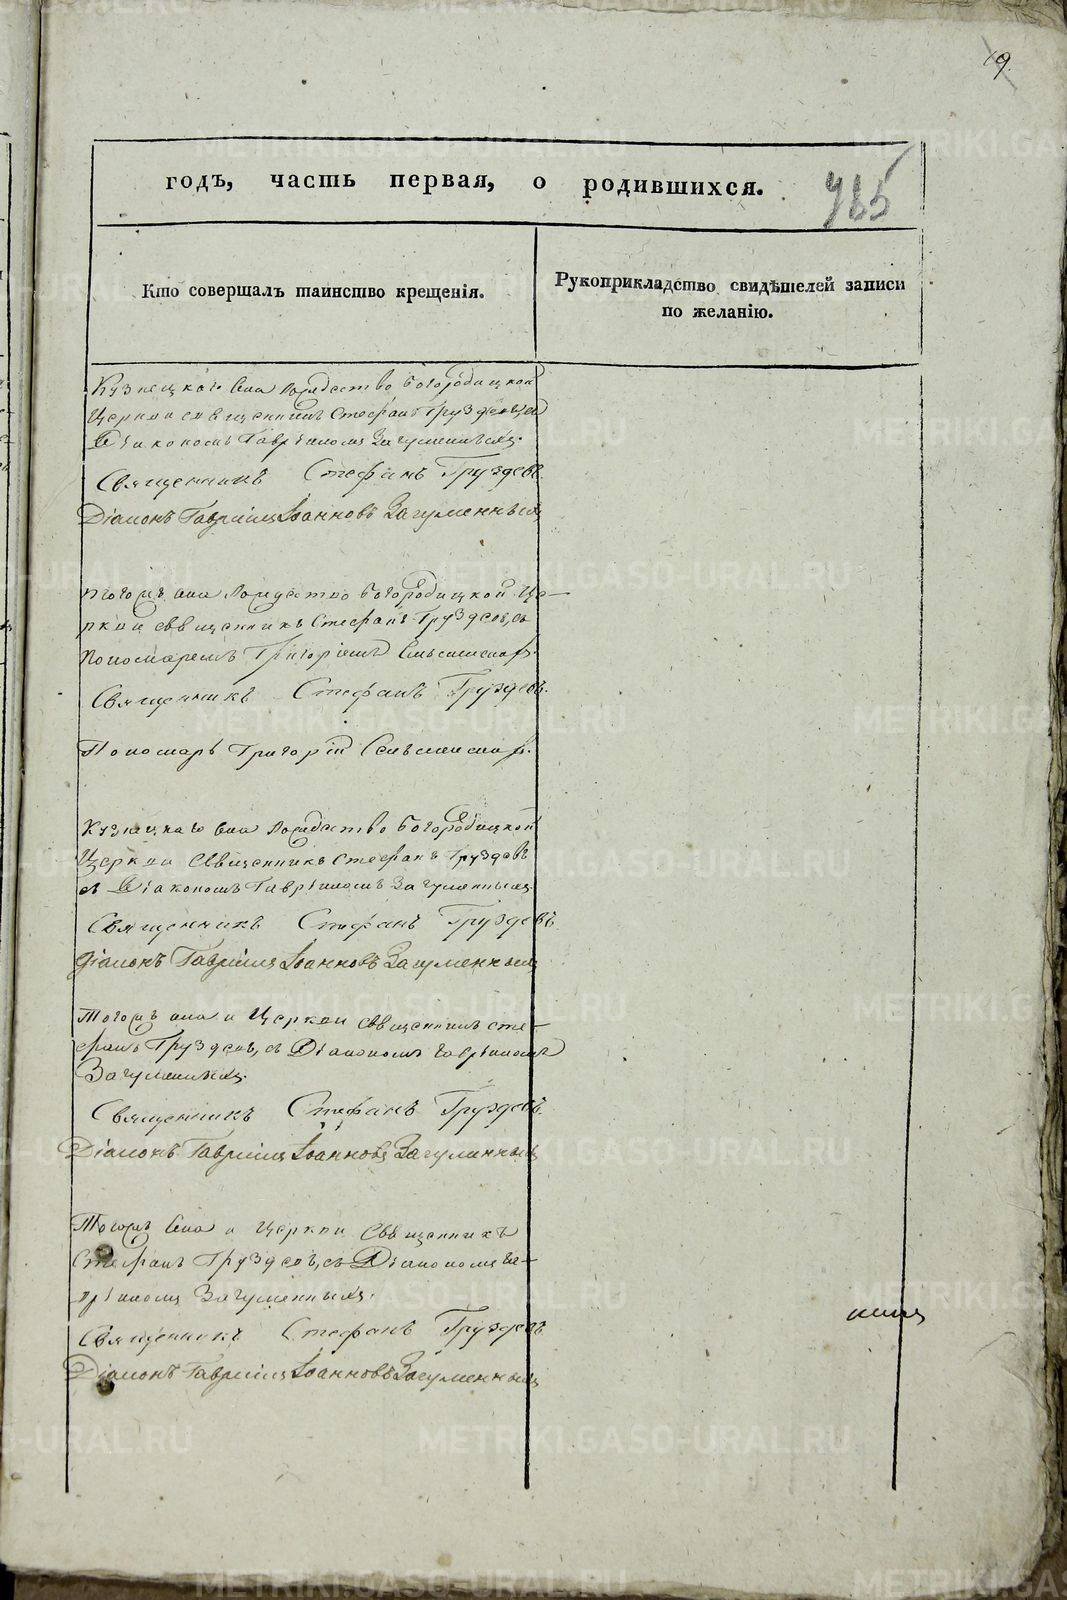 9.
годъ, часть первая, о родившихся.
765
Кто совершалъ таинство крещенія.
Рукоприкладство свидѣтелей записи
по желанію.
Кузнецкаго села Рождество Богородицкой
Церкви священникъ Стефанъ Груздевъ, съ
Діакономъ Гавріиломъ Загуменныхъ.
Священникъ Стефанъ Груздевъ.
Діаконъ Гавріилъ Іоанновъ Загуменныхъ
Тогожъ села Рождество Богородицкой Це-
ркви священникъ Стефанъ Груздевъ, съ
Пономаремъ Григоріемъ
Священникъ Стефанъ Груздевъ.
Пономарь Григорій
Кузнецкаго села Рождество Богородицкой
Церкви священникъ Стефанъ Груздевъ
съ Діакономъ Гавріиломъ Загуменныхъ
Священникъ Стефанъ Груздевъ
Діаконъ Гавріилъ Іоанновъ Загуменныхъ
Тогожъ села и Церкви священникъ Сте-
фанъ Груздевъ, съ Діакономъ Гавріиломъ
Загуменныхъ.
Священникъ Стефанъ Груздевъ.
Діаконъ Гавріилъ Іоанновъ Загуменныхъ
Тогожъ села и Церкви священникъ
Стефанъ Груздевъ, съ Діакономъ Га-
вріиломъ Загуменныхъ.
Священникъ Стефанъ Груздевъ
Діаконъ Гавріилъ Іоанновъ Загуменныхъ
METRIKI.GASO-URAL.RU